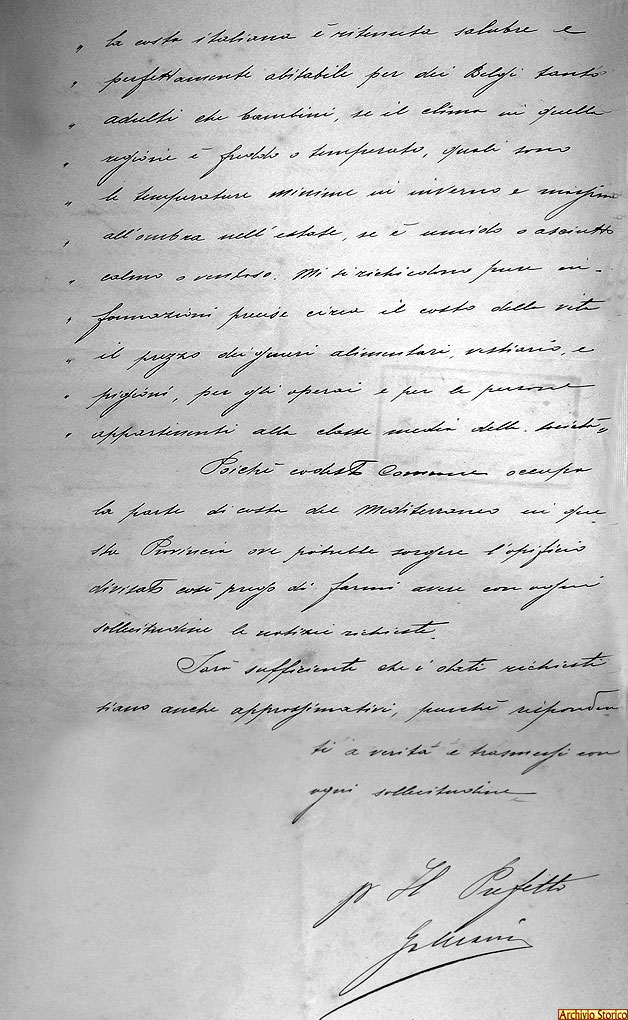 " la costa italiana è ritenuta salubre e
" perfettamente abitabile per dei Belgi tanto
" adulti che bambini, se il clima in quella
" regione è freddo o temperato, quali sono
" le temperature minime in inverno e massime
" all'ombra nell'estate, se è umido o asciutto
" calmo o ventoso. Mi si richiedono pure in-
" formazioni precise circa il costo della vita
" il prezzo dei generi alimentari, vestiario, e
" pigioni, per gli operai e per le persone
" appartenenti alla classe media della società"
Poichè codesto Comune occupa
la parte di costa del Mediterraneo in que-
sta Provincia ove potrebbe sorgere l'opificio
divisato così prego di farmi avere con ogni
sollecitudine le notizie richieste.
Sarà sufficiente che i dati richiesti
siano anche approssimativi, purchè risponden
ti a verità e trasmessi con
ogni sollecitudine
pr Il Prefetto
Archivio Storico